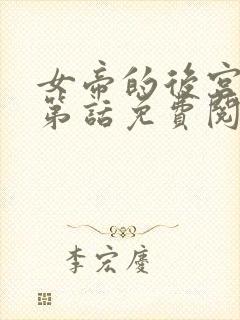 女帝的後宮
第話免費閱
李宏慶